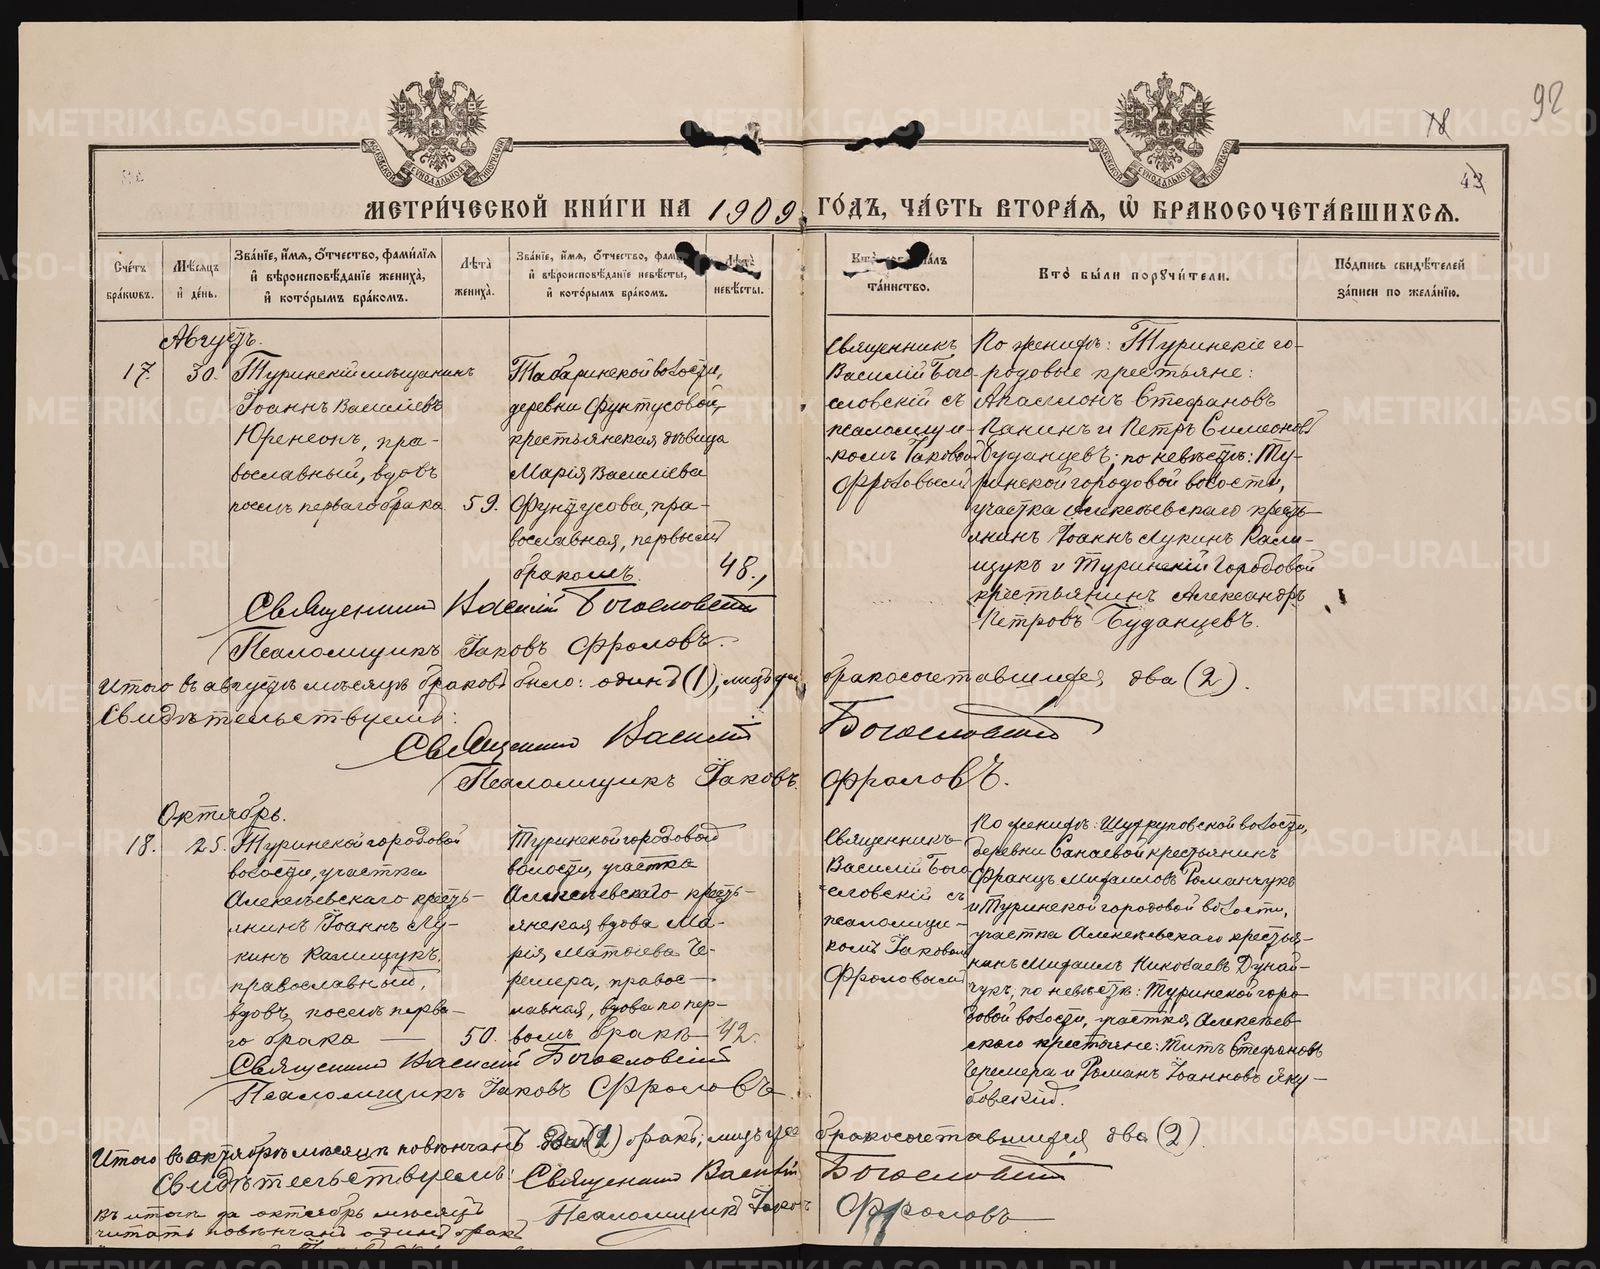 92
78
43
МЕТРИ́ЧЕСКОЙ КНИ́ГИ НА 1909 ГО́ДЪ, ЧА́СТЬ ВТОРА́Я, Ѽ БРАКОСОЧЕТА́ВШИХСЯ.
Сче́тъ бра́ковъ.
Мѣ́сяцъ и҆ де́нь.
Зва́нїе, и҆́мя, ѻ҆́тчество, фами́лїя
и҆ вѣроисповѣ́данїе жениха̀,
и҆ кото́рымъ бра́комъ.
Лѣ́та̀ жениха̀.
Зва́нїе, и҆́мя, ѻ҆́тчество, фами́лїя
и҆ вѣроисповѣ́данїе невѣ́сты,
и҆ кото́рымъ бра́комъ.
Лѣ́та̀ невѣ́сты.
та́инство.
Кто̀ бы́ли порꙋчи́тели.
По́дпись свидѣ́телей
за́писи по жела́нїю.
Августъ.
17.
30.
Туринскій мѣщанинъ
Іоаннъ Василіевъ
пра-
вославный, вдовъ
послѣ перваго брака
59.
Табаринской волости,
деревни Фунтусовой,
крестьянская дѣвица
Марія Василіева
Фунтусова, пра-
вославная, первымъ
бракомъ.
48.
Священникъ
Василій Бого-
словскій съ
псаломщи-
комъ Іаковомъ
Фроловымъ
По женихѣ: Туринскіе го-
родовые крестьяне:
Аполлонъ Стефановъ
Панинъ и Петръ Симеоновъ
Буданцевъ; по невѣстѣ: Ту-
ринской городовой волости,
участка Алексѣевскаго кресть-
янинъ Іоаннъ Лукинъ Кали-
щукъ и Туринскій городовой
крестьянинъ Александръ
Петровъ Буданцевъ.
Священникъ Василій Богословскій
Псаломщикъ Іаковъ Фроловъ.
Итого въ августѣ мѣсяцѣ браковъ было: одинъ (1), лицъ же бракосочетавшихся два (2).
Свидѣтельствуемъ:
Священникъ Василій Богословскій
Псаломщикъ Іаковъ Фроловъ.
Октябрь.
18.
25.
Туринской городовой
волости, участка
Алексѣевскаго кресть-
янинъ Іоаннъ Лу-
кинъ Калищукъ,
православный,
вдовъ послѣ перва-
го брака —
50.
Туринской городовой
волости, участка
Алексѣевскаго кресть-
янская вдова Ма-
рія Матѳіева Че-
ремера, правос-
лавная, вдова по пер-
вомъ бракѣ —
42.
Священникъ
Василій Бого-
словскій съ
псаломщи-
комъ Іаковомъ
Фроловымъ
По женихѣ: Шухруповской волости,
деревни Санаевой крестьянинъ
Францъ Михаиловъ Романчукъ
и Туринской городовой волости,
участка Алексѣевскаго крестья-
нинъ Михаилъ Николаевъ Дунай-
чукъ, по невѣстѣ: Туринской горо-
довой волости, участка Алексѣев-
скаго крестьяне: Титъ Стефановъ
Черемера и Романъ Іоанновъ Яку-
бовскій.
Священникъ Василій Богословскій
Псаломщикъ Іаковъ Фроловъ
Итого въ октябрѣ мѣсяцѣ повѣнчанъ (1) бракъ; лицъ же бракосочетавшихся два (2).
Свидѣтельствуемъ: Священникъ Василій Богословскій
Псаломщикъ Іаковъ Фроловъ
Въ итогѣ за октябрь мѣсяцъ
читать повѣнчанъ одинъ бракъ